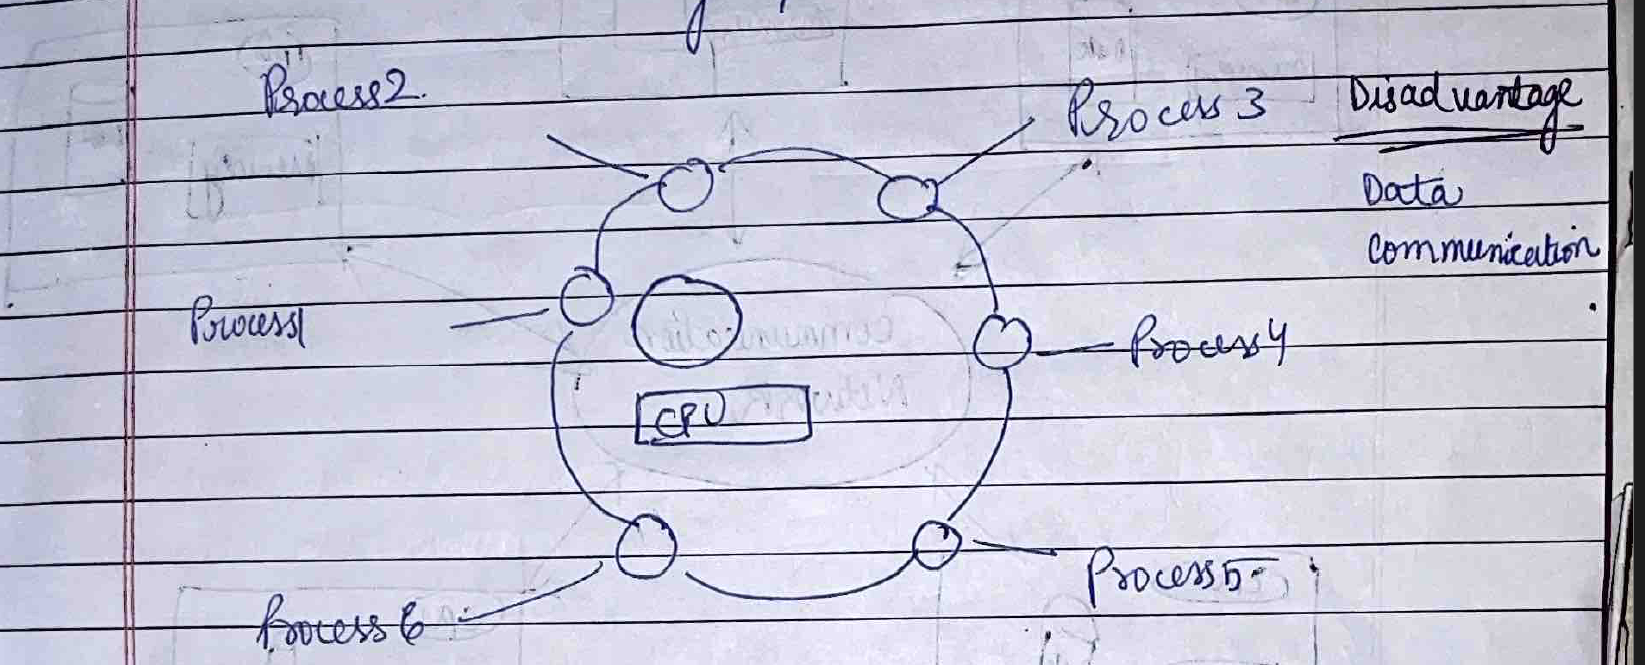 Process2.
Process 3
Disadvantage
Data
Communication
Process1
Process4
CPU
Process5
Process 6